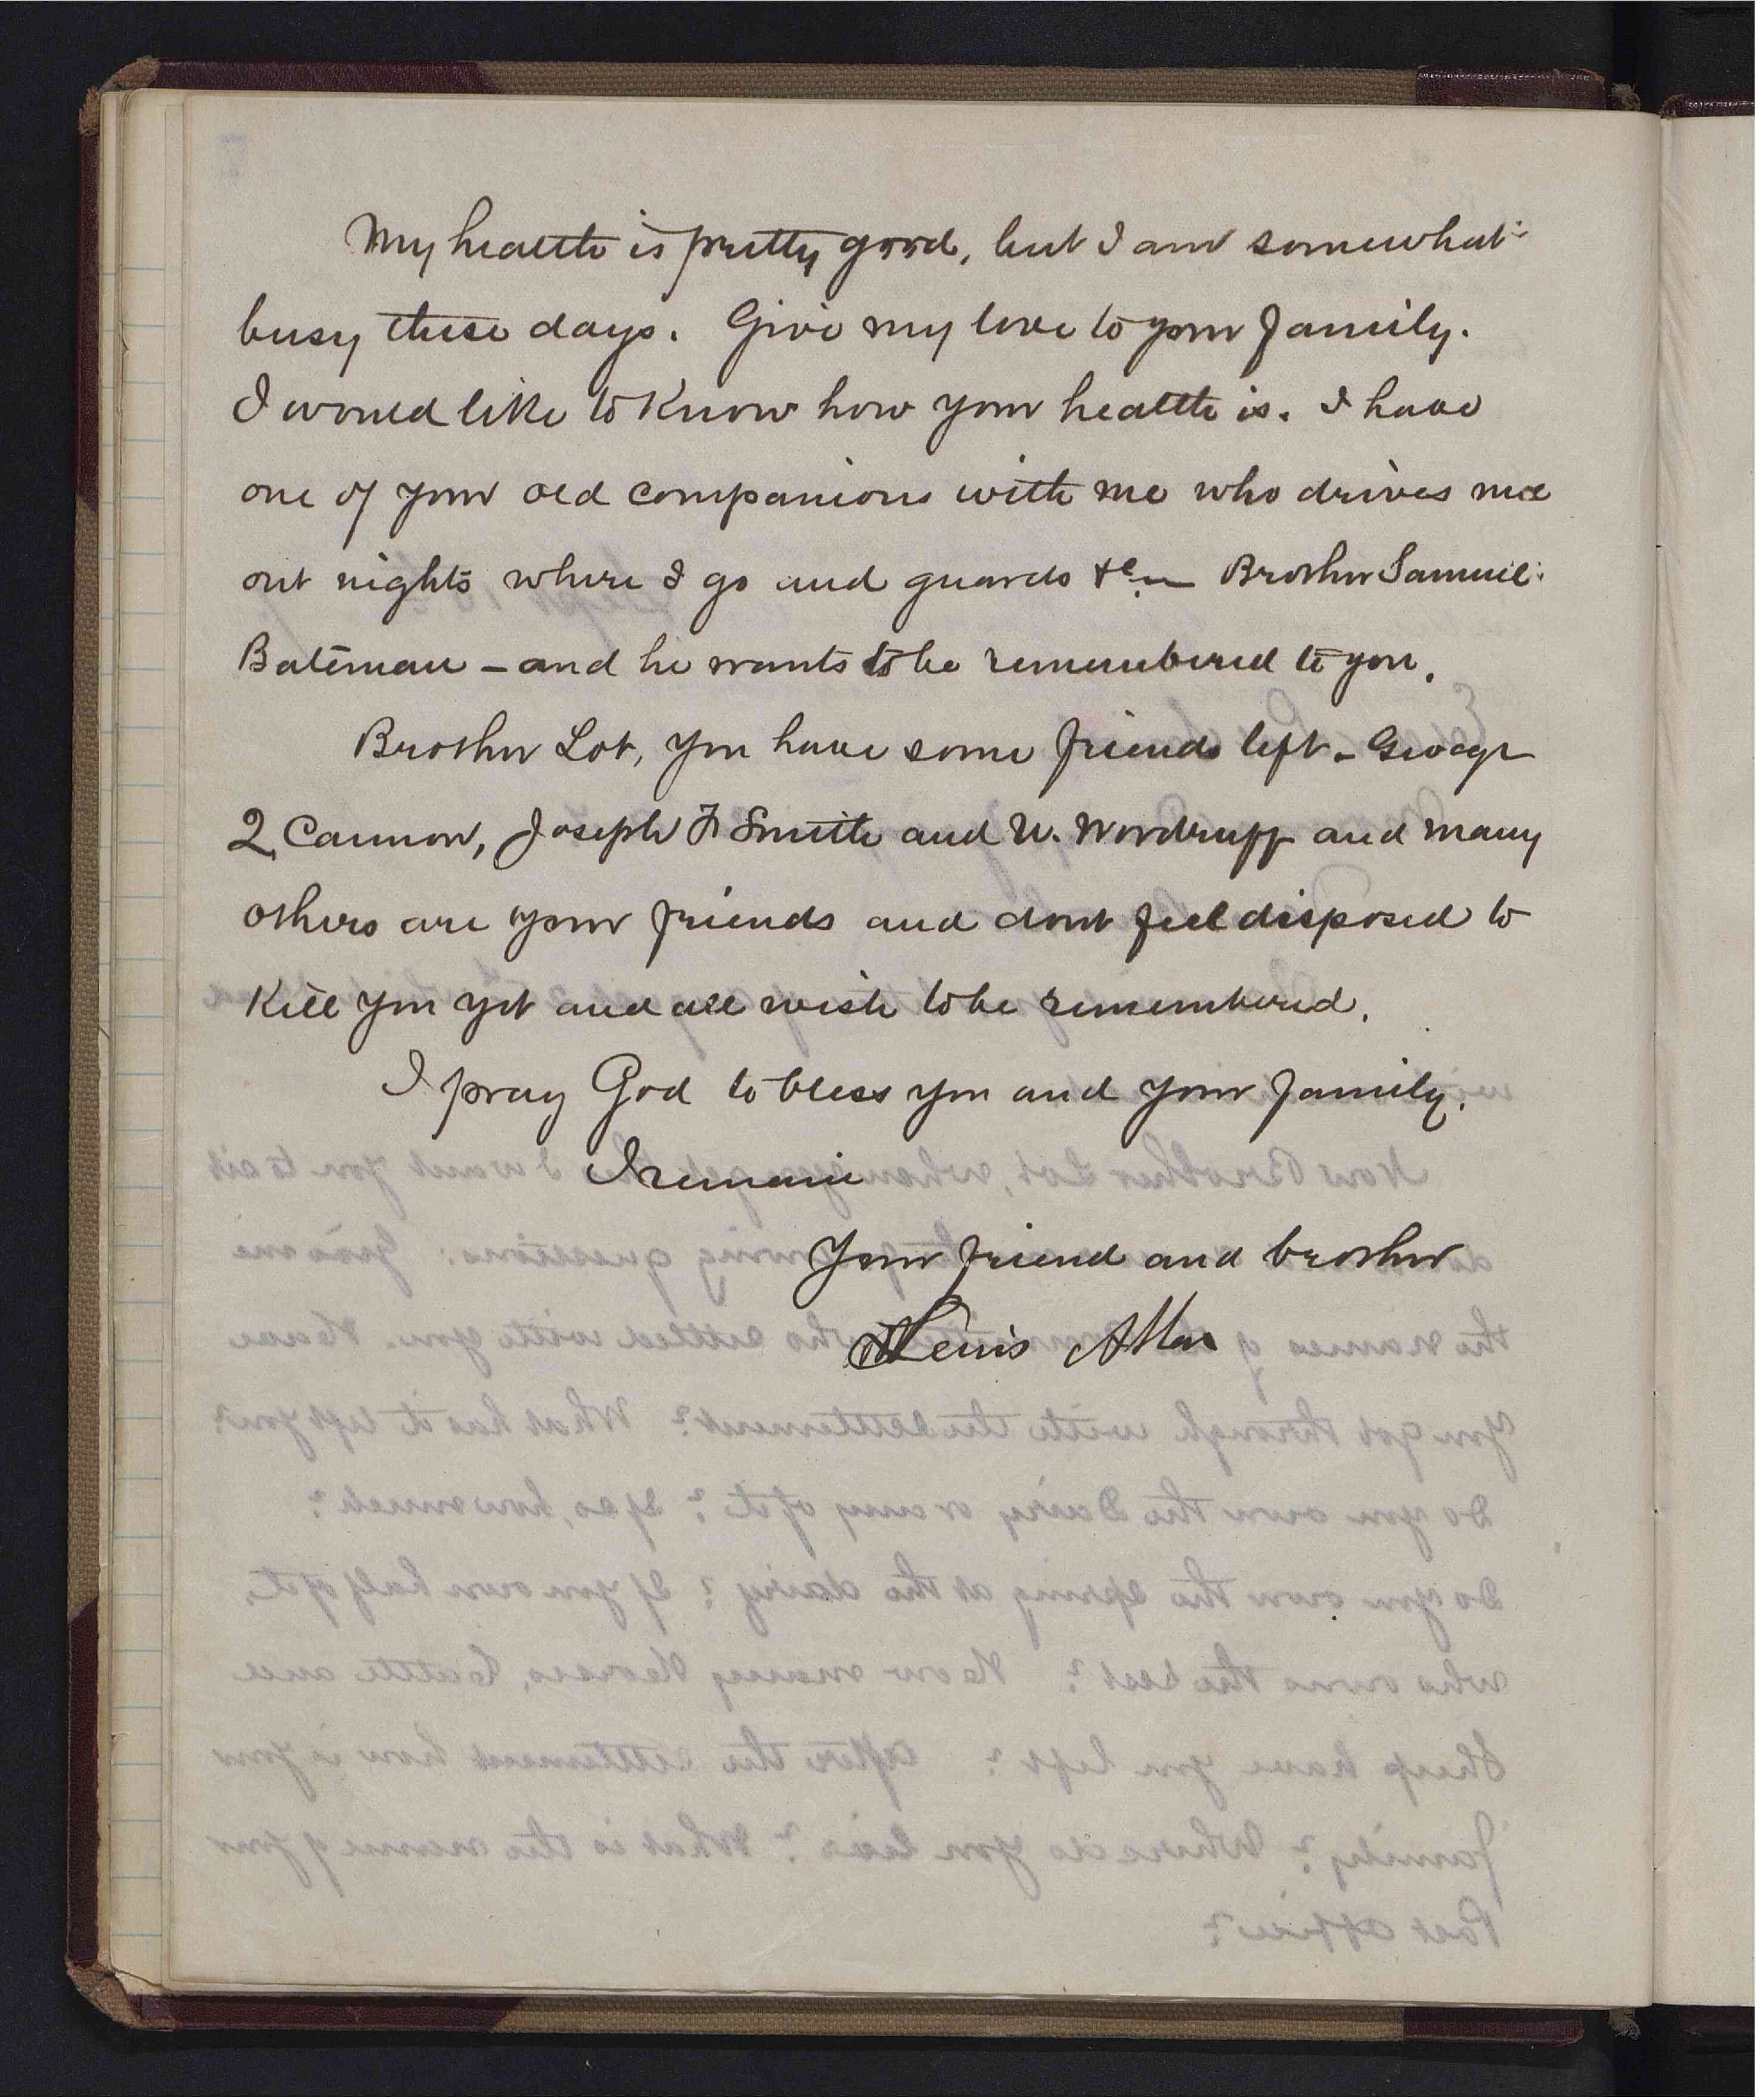 My health is pretty good, but I am somewhat
busy these days. Give my love to your family.
I would like to know how your health is. I have
one of your old companions with me who drives me
out nights where I go and guards &c — Brother Samuel
Bateman — and he wants to be remembered to you.
Brother Lot, you have some friends left — George
Q Cannon, Joseph F Smith and W. Woodruff and many
others are your friends and dont feel disposed to
kill you yet and all wish to be remembered.
I pray God to bless you and your family.
I remain
Your friend and brother
Lewis Allan